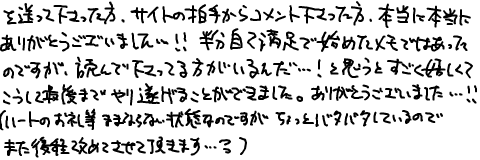 を送って下さった方、サイトの拍手からコメント下さった方、本当に本当に
ありがとうございました…!! 半分自己満足で始めたメモではあった
のですが、読んで下さってる方がいるんだ…!と思うとすごく嬉しくて
こうして最後までやり遂げることができました。ありがとうございました…!!
(ハートのお礼等ままならない状態なのですがちょっとバタバタしているので
また後程改めてさせて頂きます…